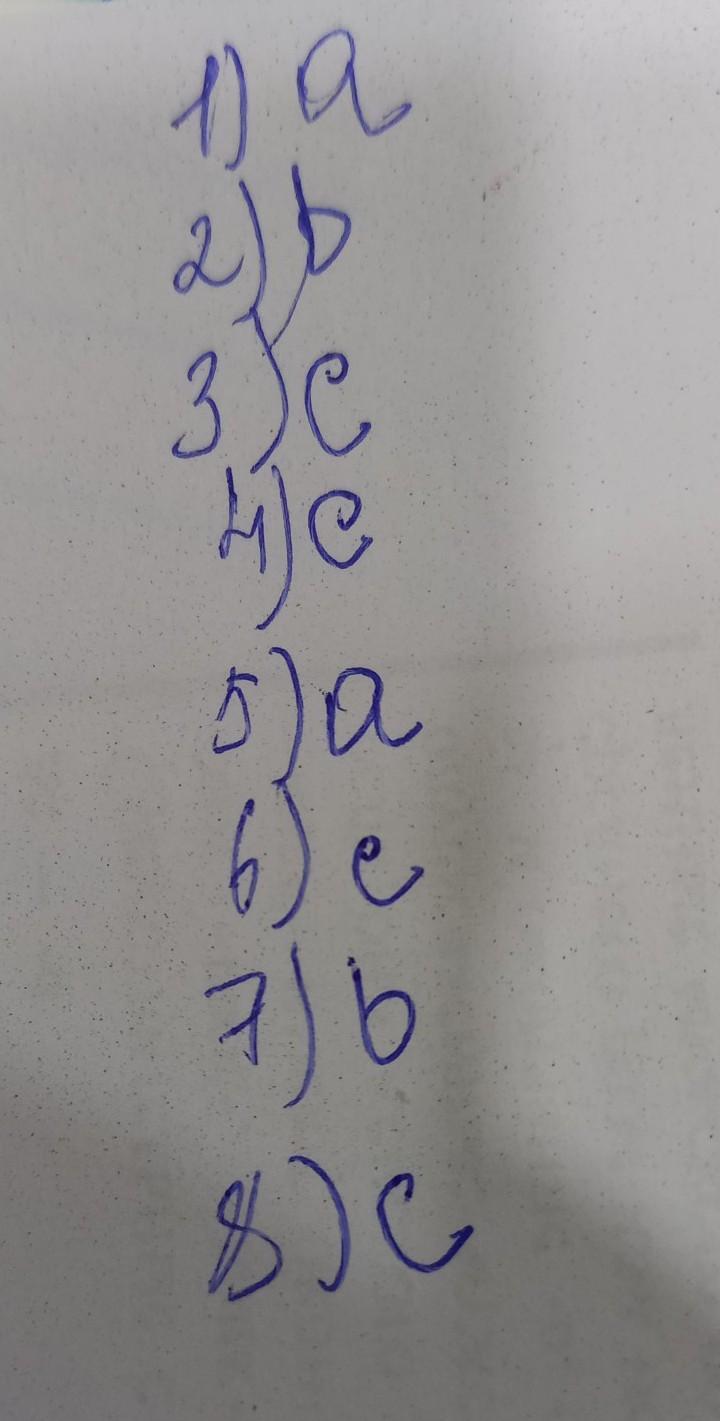 1) a
2) b
3) c
4) c
5) a
6) c
7) b
8) c